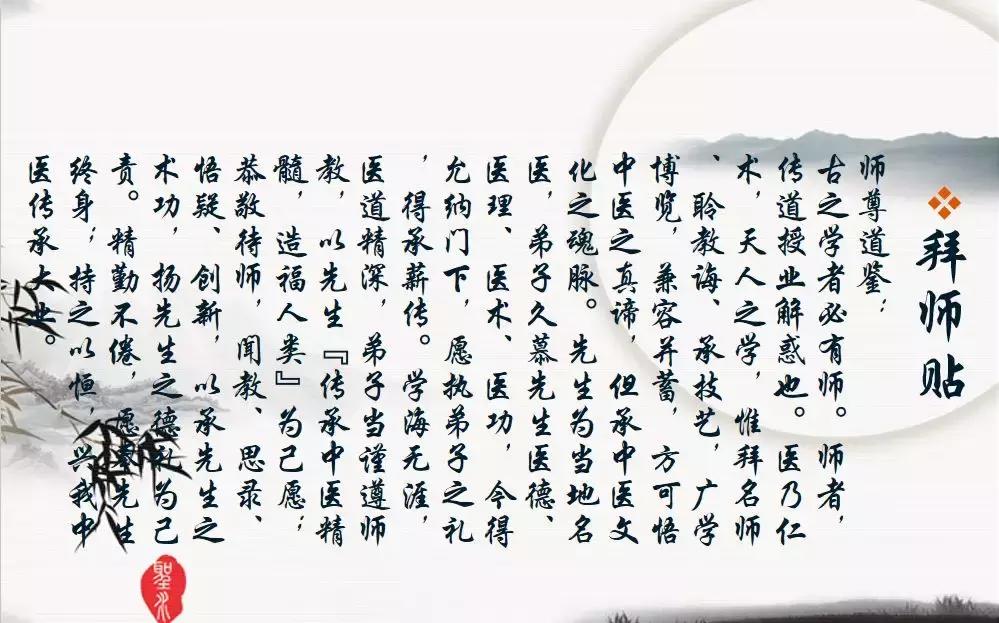 拜师贴
师尊道鉴；
古之学者必有师。师者，
传道授业解惑也。医乃仁
术，天人之学，惟拜名师
、聆教诲、承技艺，广学
博览，兼容并蓄，方可悟
中医之真谛，但承中医文
化之魂脉。先生为当地名
医，弟子久慕先生医德、
医理、医术、医功，今得
允纳门下，愿执弟子之礼
，得承薪传。学海无涯，
医道精深，弟子当谨遵师
教，以先生『传承中医精
髓，造福人类』为己愿；
恭敬待师，闻教、思录、
悟疑、创新，以承先生之
术功，扬先生之德礼为己
责。精勤不倦，愿奉先生
终身；持之以恒，兴我中
医传承大业。